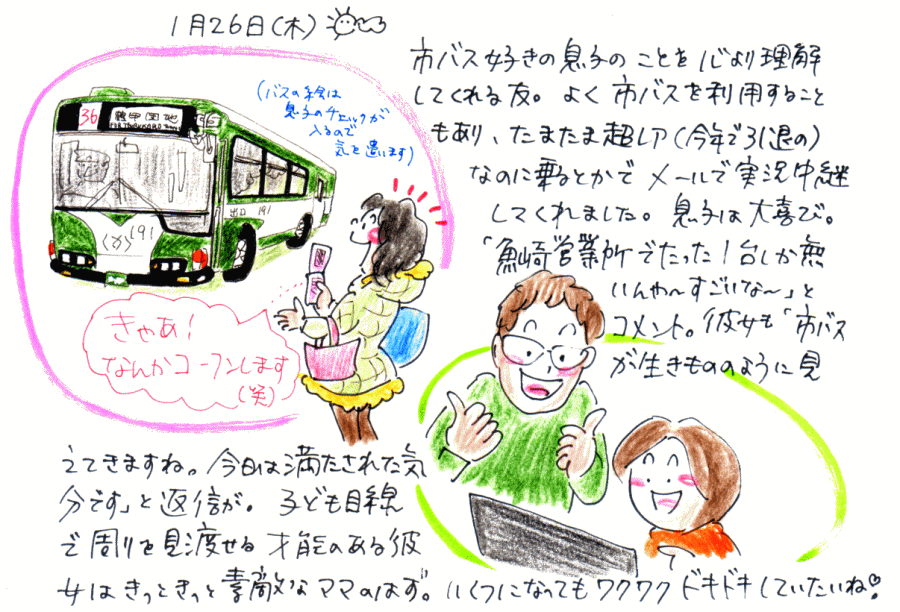 1月26日(木)
市バス好きの息子のことを心より理解
してくれる友。よく市バスを利用すること
もあり、たまたま超レア(今年で引退の)
なのに乗るとかでメールで実況中継
してくれました。息子は大喜び。
「魚崎営業所でたった1台しか無
いんや〜すごいな〜」と
コメント。彼女も「市バス
が生きもののように見
えてきますね。今日は満たされた気
分です」と返信が。子ども目線
で周りを見渡せる才能のある彼
女はきっときっと素敵なママのはず。いくつになってもワクワクドキドキしていたいね♡
(バスの絵は
息子のチェックが
入るので
気を遣います)
36
鶴甲団地
出口 191
191
きゃあ!
なんかコーフンします
(笑)